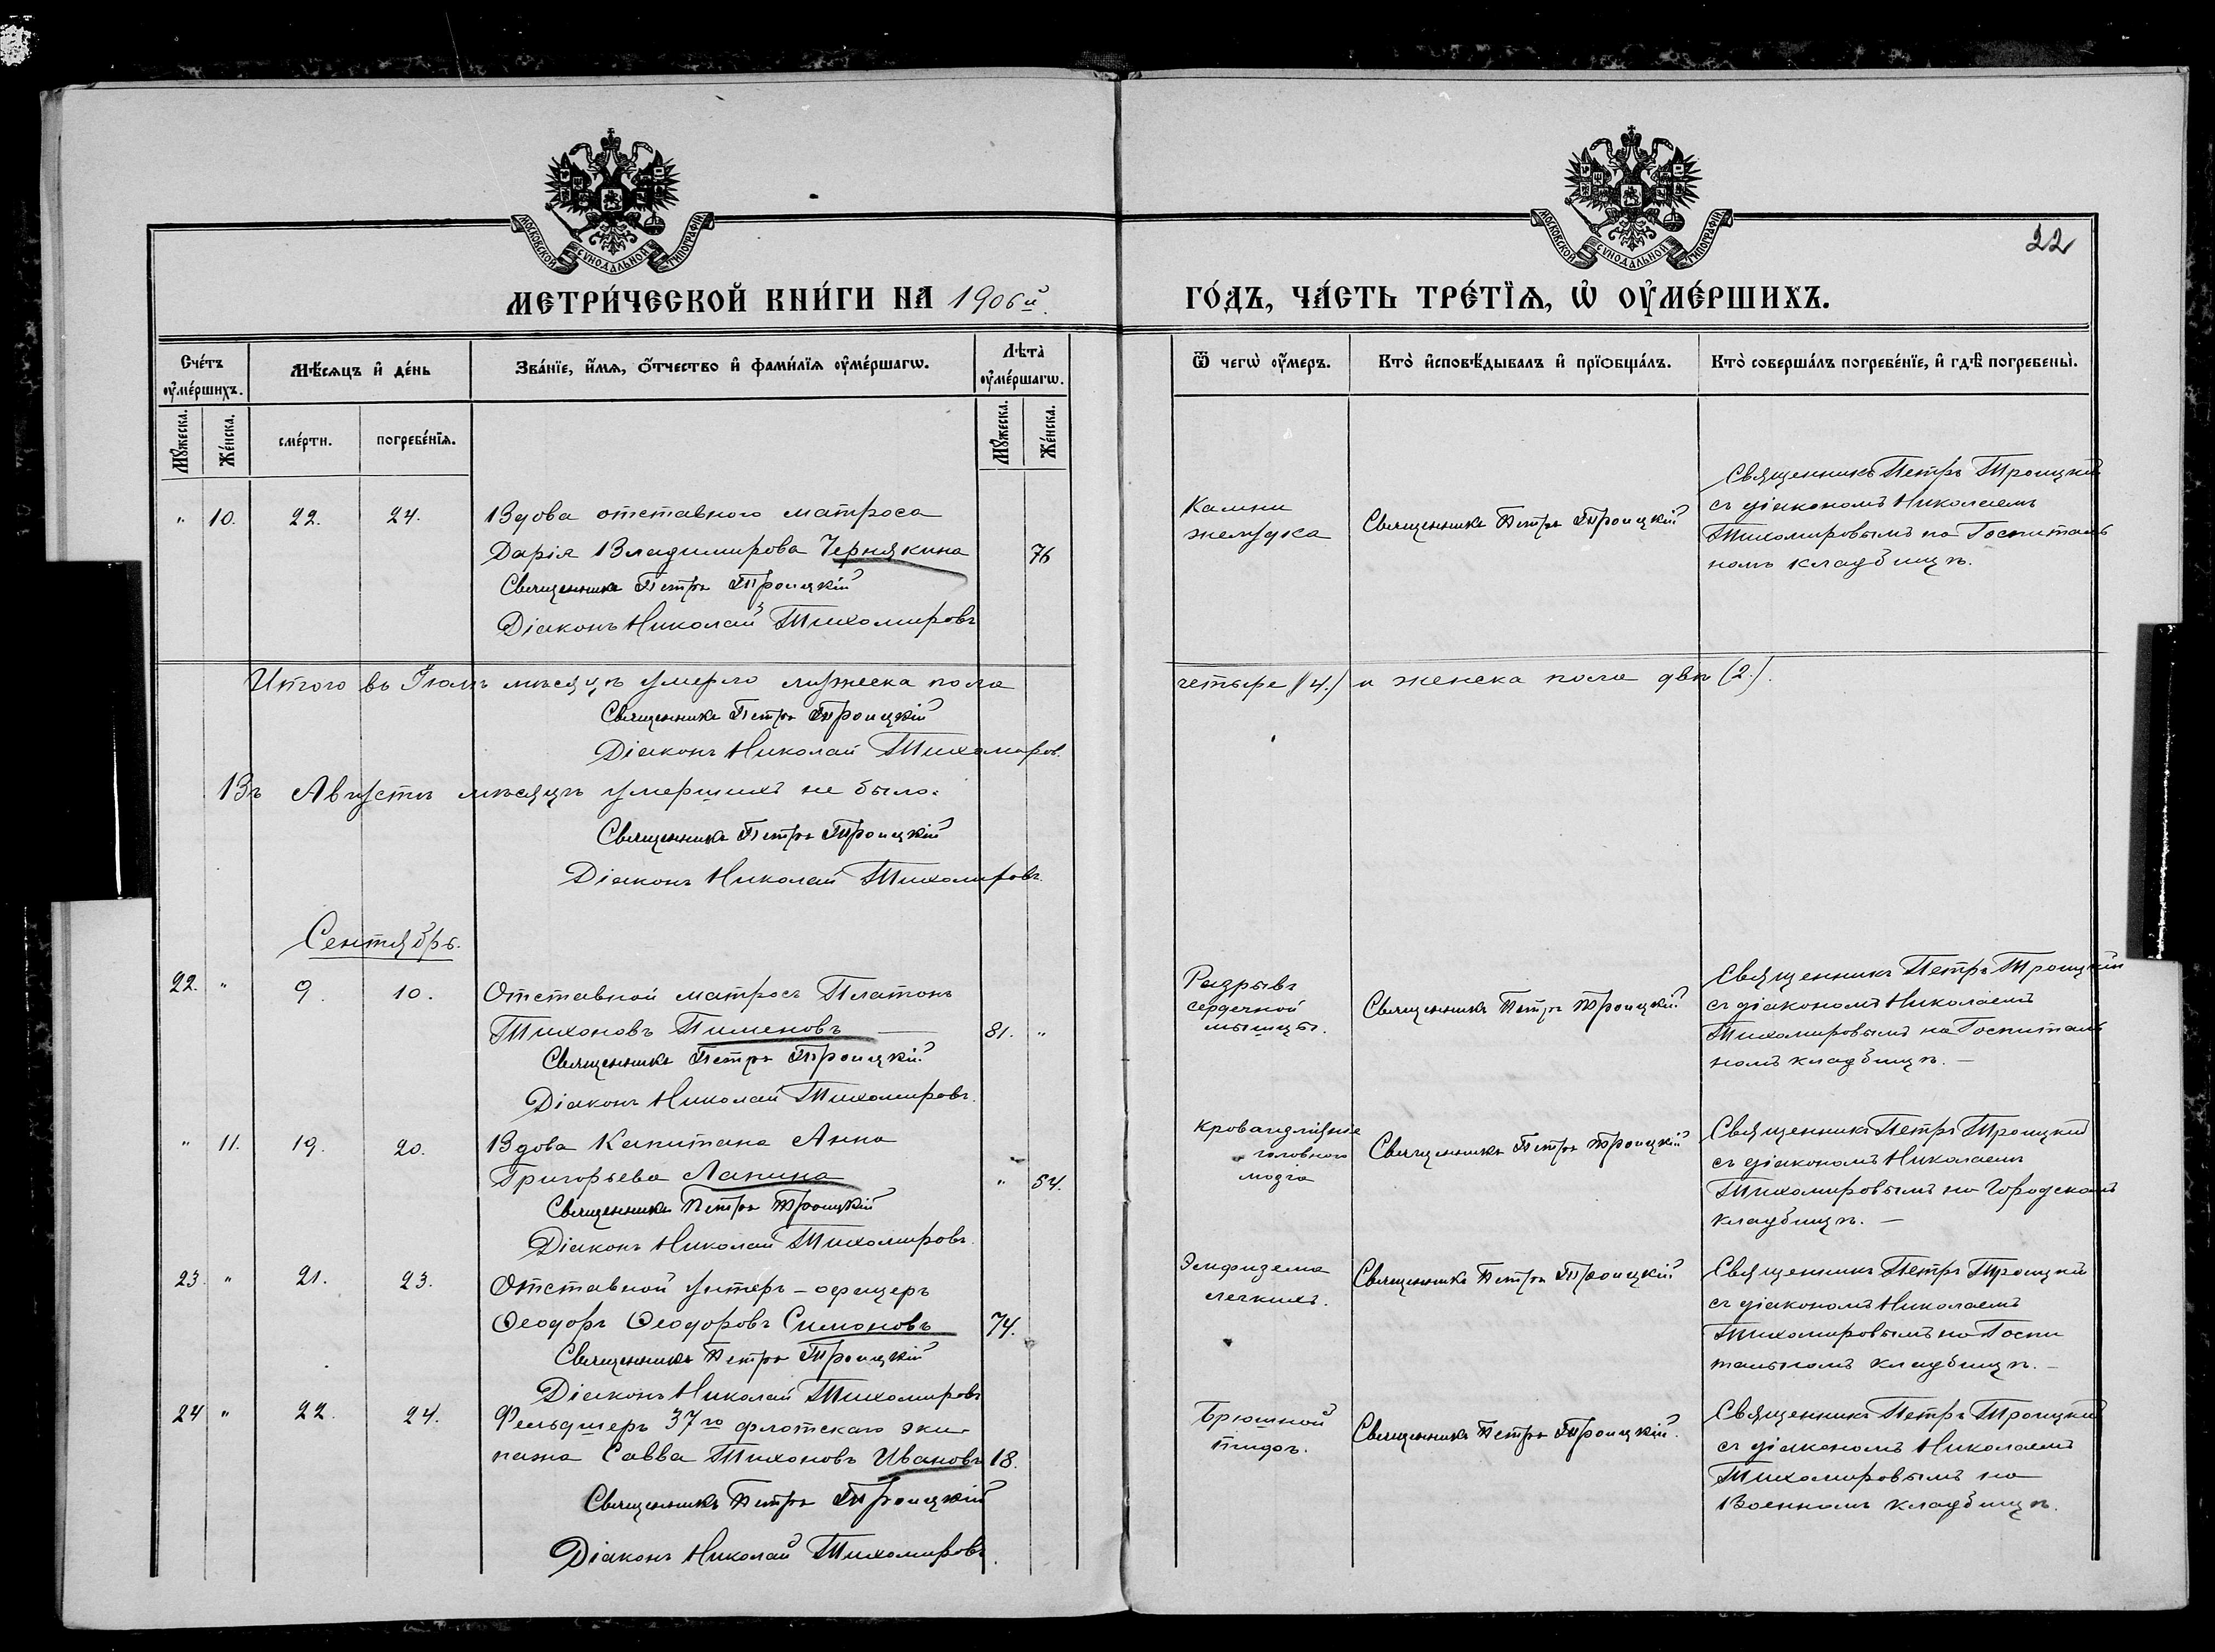 МОСКОВСКОЙ СУНОДАЛЬНОЙ ТИПОГРАФІИ
МОСКОВСКОЙ СУНОДАЛЬНОЙ ТИПОГРАФІИ
22
МЕТРИ́ЧЕСКОЙ КНИ́ГИ НА 1906й
ГО́ДЪ, ЧА́СТЬ ТРЕ́ТЇѦ, Ѡ҆ ОУ҆МЕ́РШИХЪ.
Сче́тъ оу҆ме́ршихъ.
Мѣ́сяцъ и҆ де́нь
Зва́нїе, и҆́мя, ѻ҆́тчество и҆ фами́лїя оу҆ме́ршагѡ.
Лѣта̀ оу҆ме́ршагѡ.
Ѿ чегѡ̀ оу҆́меръ.
Кто̀ и҆сповѣ́дывалъ и҆ прїѻбща́лъ.
Кто̀ соверша́лъ погребе́нїе, и҆ гдѣ̀ погребены̀.
Мꙋ́жеска.
Же́нска.
сме́рти.
погребе́нїя.
Мꙋ́жеска.
Же́нска.
" 10. 22. 24.
Вдова отставного матроса
Дарія Владимирова Чернякина
76
Священникъ Петръ Троицкій
Діаконъ Николай Тихомировъ
Камни
желудка
Священникъ Петръ Троицкій
Священникъ Петръ Троицкій
съ діакономъ Николаемъ
Тихомировымъ на Госпиталь
номъ кладбищѣ.
Итого въ Іюлѣ мѣсяцѣ умерло мужеска пола
четыре (4.) и женска пола двѣ (2.).
Священникъ Петръ Троицкій
Діаконъ Николай Тихомиров.
Въ Августѣ мѣсяцѣ умершихъ не было.
Священникъ Петръ Троицкій
Діаконъ Николай Тихомировъ.
Сентябрь.
22. " 9. 10.
Отставной матросъ Платонъ
Тихоновъ Пименовъ
81. "
Священникъ Петръ Троицкій
Діаконъ Николай Тихомировъ.
Разрывъ
сердечной
мышцы.
Священникъ Петръ Троицкій
Священникъ Петръ Троицкій
съ діакономъ Николаемъ
Тихомировымъ на Госпиталь
номъ кладбищѣ. —
" 11. 19. 20.
Вдова Капитана Анна
Григорьева Лапина
" 54.
Священникъ Петръ Троицкій
Діаконъ Николай Тихомировъ.
Кровоизліяніе
головного
мозга
Священникъ Петръ Троицкій
Священникъ Петръ Троицкій
съ діакономъ Николаемъ
Тихомировымъ на Городскомъ
кладбищѣ. —
23. " 21. 23.
Отставной унтеръ-офицеръ
Ѳеодоръ Ѳеодоровъ Симоновъ
74.
Священникъ Петръ Троицкій
Діаконъ Николай Тихомировъ
Эмфизема
легкихъ.
Священникъ Петръ Троицкій
Священникъ Петръ Троицкій
съ діакономъ Николаемъ
Тихомировымъ на Госпи
тальномъ кладбищѣ. —
24 " 22. 24.
Фельдшеръ 37го флотскаго эки-
пажа Савва Тихоновъ Ивановъ
18.
Священникъ Петръ Троицкій
Діаконъ Николай Тихомировъ.
Брюшной
тифъ.
Священникъ Петръ Троицкій.
Священникъ Петръ Троицкій
съ діакономъ Николаемъ
Тихомировымъ на
Военномъ кладбищѣ.